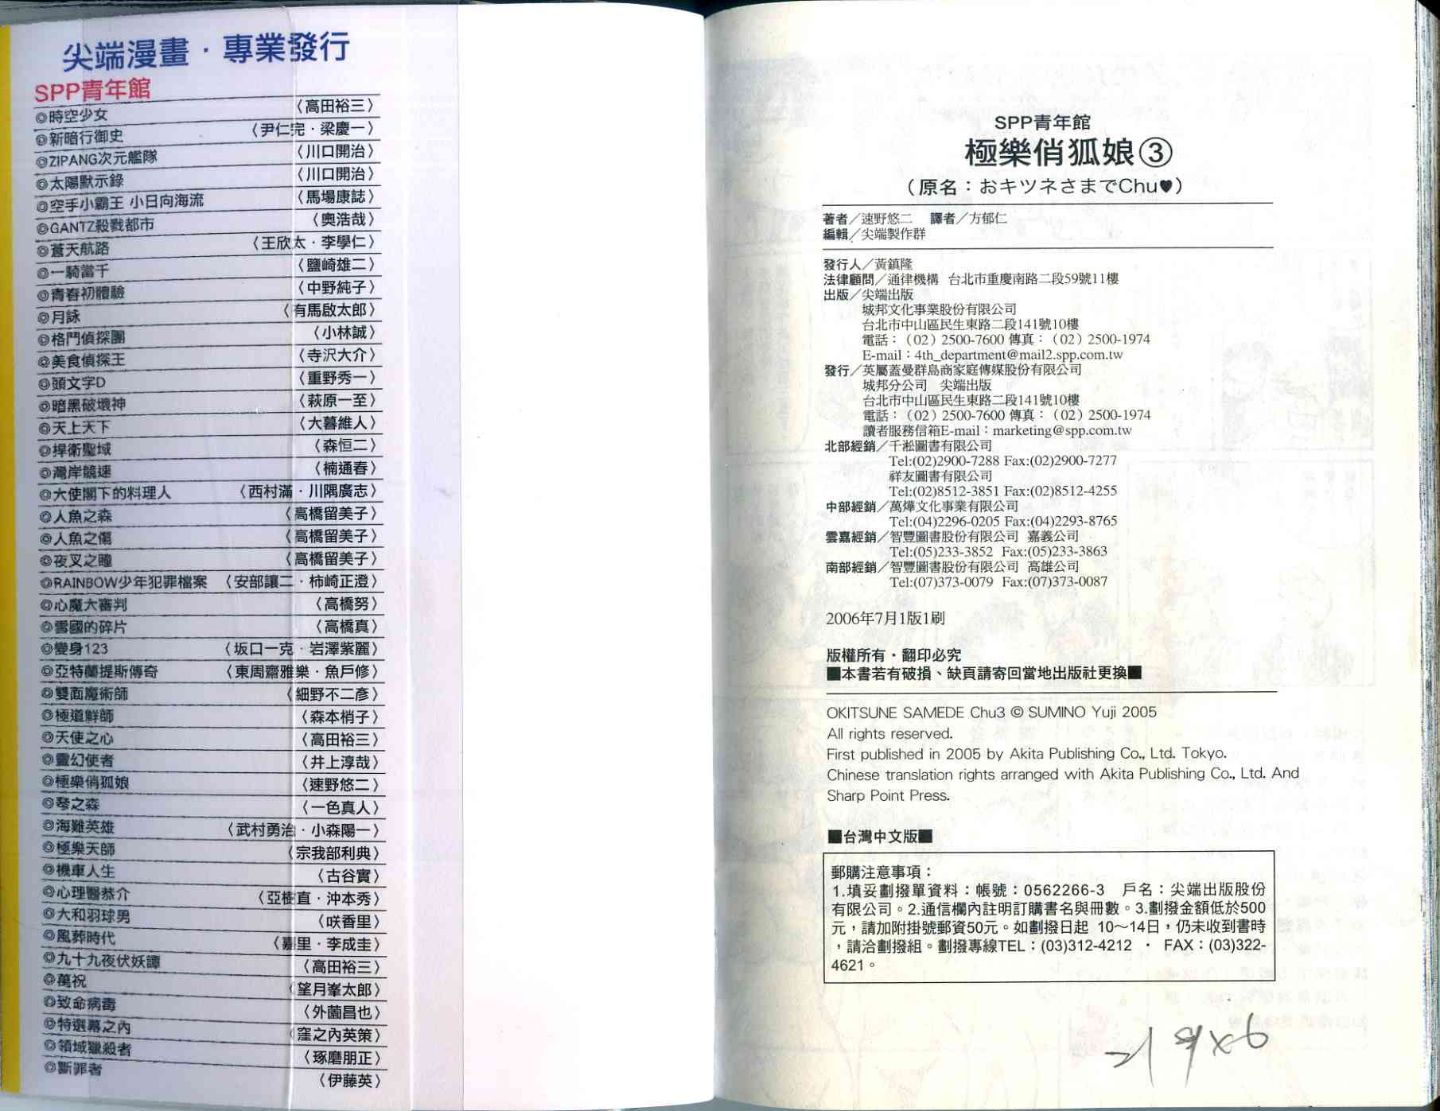 尖端漫畫．專業發行
SPP青年館
◎時空少女 〈高田裕三〉
◎新暗行御史 〈尹仁完．梁慶一〉
◎ZIPANG次元艦隊 〈川口開治〉
◎太陽默示錄 〈川口開治〉
◎空手小霸王 小日向海流 〈馬場康誌〉
◎GANTZ殺戮都市 〈奧浩哉〉
◎蒼天航路 〈王欣太．李學仁〉
◎一騎當千 〈鹽崎雄二〉
◎青春初體驗 〈中野純子〉
◎月詠 〈有馬啟太郎〉
◎格鬥偵探團 〈小林誠〉
◎美食偵探王 〈寺沢大介〉
◎頭文字D 〈重野秀一〉
◎暗黑破壞神 〈萩原一至〉
◎天上天下 〈大暮維人〉
◎捍衛聖域 〈森恒二〉
◎灣岸競速 〈楠通春〉
◎大使閣下的料理人 〈西村滿．川隅廣志〉
◎人魚之森 〈高橋留美子〉
◎人魚之傷 〈高橋留美子〉
◎夜叉之瞳 〈高橋留美子〉
◎RAINBOW少年犯罪檔案 〈安部讓二．柿崎正澄〉
◎心魔大審判 〈高橋努〉
◎雪國的碎片 〈高橋真〉
◎變身123 〈坂口一克．岩澤紫麗〉
◎亞特蘭提斯傳奇 〈東周齋雅樂．魚戶修〉
◎雙面魔術師 〈細野不二彥〉
◎極道鮮師 〈森本梢子〉
◎天使之心 〈高田裕三〉
◎靈幻使者 〈井上淳哉〉
◎極樂俏狐娘 〈速野悠二〉
◎琴之森 〈一色真人〉
◎海難英雄 〈武村勇治．小森陽一〉
◎極樂天師 〈宗我部利典〉
◎機車人生 〈古谷實〉
◎心理醫恭介 〈亞樹直．沖本秀〉
◎大和羽球男 〈咲香里〉
◎風葬時代 〈嘉里．李成圭〉
◎九十九夜伏妖譚 〈高田裕三〉
◎萬祝 〈望月峯太郎〉
◎致命病毒 〈外薗昌也〉
◎特選幕之內 〈窪之內英策〉
◎領域獵殺者 〈琢磨朋正〉
◎斷罪者 〈伊藤英〉
SPP青年館
極樂俏狐娘③
（原名：おキツネさまでChu♥）
著者／速野悠二 譯者／方郁仁
編輯／尖端製作群
發行人／黃鎮隆
法律顧問／通律機構 台北市重慶南路二段59號11樓
出版／尖端出版
城邦文化事業股份有限公司
台北市中山區民生東路二段141號10樓
電話：（02）2500-7600 傳真：（02）2500-1974
E-mail：4th_department@mail2.spp.com.tw
發行／英屬蓋曼群島商家庭傳媒股份有限公司
城邦分公司 尖端出版
台北市中山區民生東路二段141號10樓
電話：（02）2500-7600 傳真：（02）2500-1974
讀者服務信箱E-mail：marketing@spp.com.tw
北部經銷／千淞圖書有限公司
Tel:(02)2900-7288 Fax:(02)2900-7277
祥友圖書有限公司
Tel:(02)8512-3851 Fax:(02)8512-4255
中部經銷／萬燁文化事業有限公司
Tel:(04)2296-0205 Fax:(04)2293-8765
雲嘉經銷／智豐圖書股份有限公司 嘉義公司
Tel:(05)233-3852 Fax:(05)233-3863
南部經銷／智豐圖書股份有限公司 高雄公司
Tel:(07)373-0079 Fax:(07)373-0087
2006年7月1版1刷
版權所有．翻印必究
■本書若有破損、缺頁請寄回當地出版社更換■
OKITSUNE SAMEDE Chu3 © SUMINO Yuji 2005
All rights reserved.
First published in 2005 by Akita Publishing Co., Ltd. Tokyo.
Chinese translation rights arranged with Akita Publishing Co., Ltd. And
Sharp Point Press.
■台灣中文版■
郵購注意事項：
1.填妥劃撥單資料：帳號：0562266-3 戶名：尖端出版股份
有限公司。2.通信欄內註明訂購書名與冊數。3.劃撥金額低於500
元，請加附掛號郵資50元。如劃撥日起 10～14日，仍未收到書時
，請洽劃撥組。劃撥專線TEL：(03)312-4212 ．FAX：(03)322-
4621。